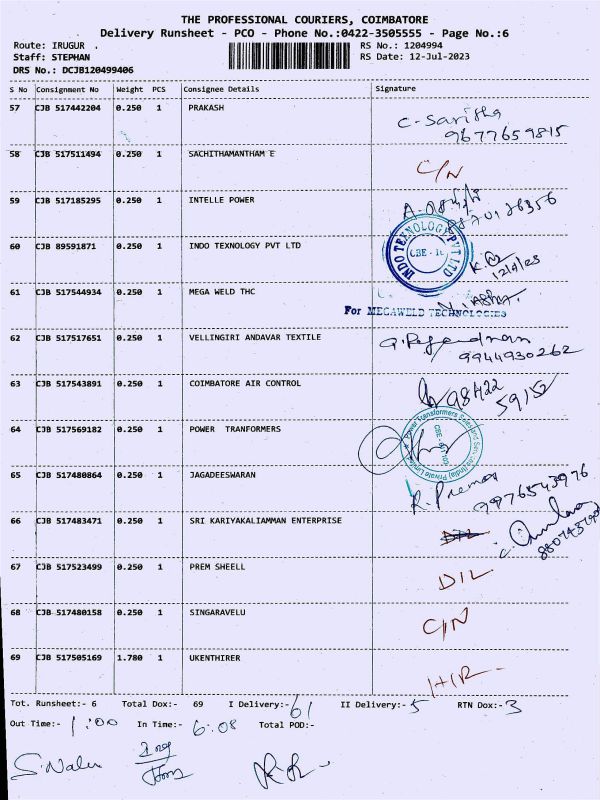 THE PROFESSIONAL COURIERS, COIMBATORE
Delivery Runsheet - PCO - Phone No.:0422-3505555 - Page No.:6
Route: IRUGUR . RS No.: 1204994
Staff: STEPHAN RS Date: 12-Jul-2023
DRS No.: DCJB120499406
S No Consignment No Weight PCS Consignee Details Signature
57 CJB 517442204 0.250 1 PRAKASH
C-Saritha
9677659815
58 CJB 517511494 0.250 1 SACHITHAMANTHAM E C/N
59 CJB 517185295 0.250 1 INTELLE POWER
60 CJB 89591871 0.250 1 INDO TEXNOLOGY PVT LTD
INDO TEXNOLOGY PVT LTD
61 CJB 517544934 0.250 1 MEGA WELD THC
For MEGAWELD TECHNOLOGIES
62 CJB 517517651 0.250 1 VELLINGIRI ANDAVAR TEXTILE
9944930262
63 CJB 517543891 0.250 1 COIMBATORE AIR CONTROL
98422
59152
64 CJB 517569182 0.250 1 POWER TRANFORMERS
65 CJB 517480864 0.250 1 JAGADEESWARAN
R. Prema
9976543976
66 CJB 517483471 0.250 1 SRI KARIYAKALIAMMAN ENTERPRISE
67 CJB 517523499 0.250 1 PREM SHEELL D/L
68 CJB 517480158 0.250 1 SINGARAVELU C/N
69 CJB 517505169 1.780 1 UKENTHIRER
Tot. Runsheet:- 6 Total Dox:- 69 I Delivery:- 61 II Delivery:- 5 RTN Dox:- 3
Out Time:- 1:00 In Time:- 6:08 Total POD:-